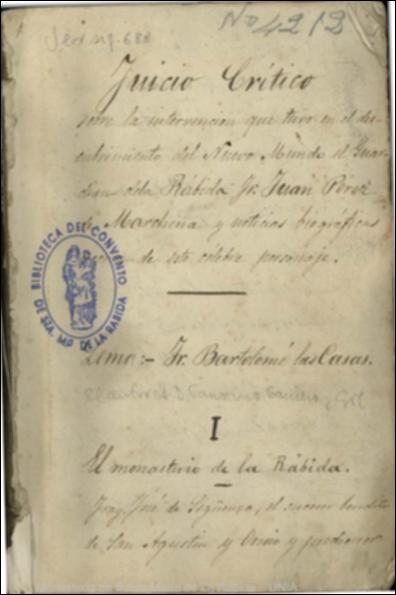 No 4212
Juicio Crítico
sobre la intervención que tuvo en el des-
cubrimiento del Nuevo Mundo el Guar-
dian de la Rábida Fr. Juan Pérez
de Marchena y noticias biográficas
de este célebre personaje.
BIBLIOTECA DEL CONVENTO
DE STA. Mª DE LA RABIDA
Lema:- Fr. Bartolomé las Casas.
El autor es D.
I
El monasterio de la Rábida.
Fray José de Sigüenza, el
de San Agustin y